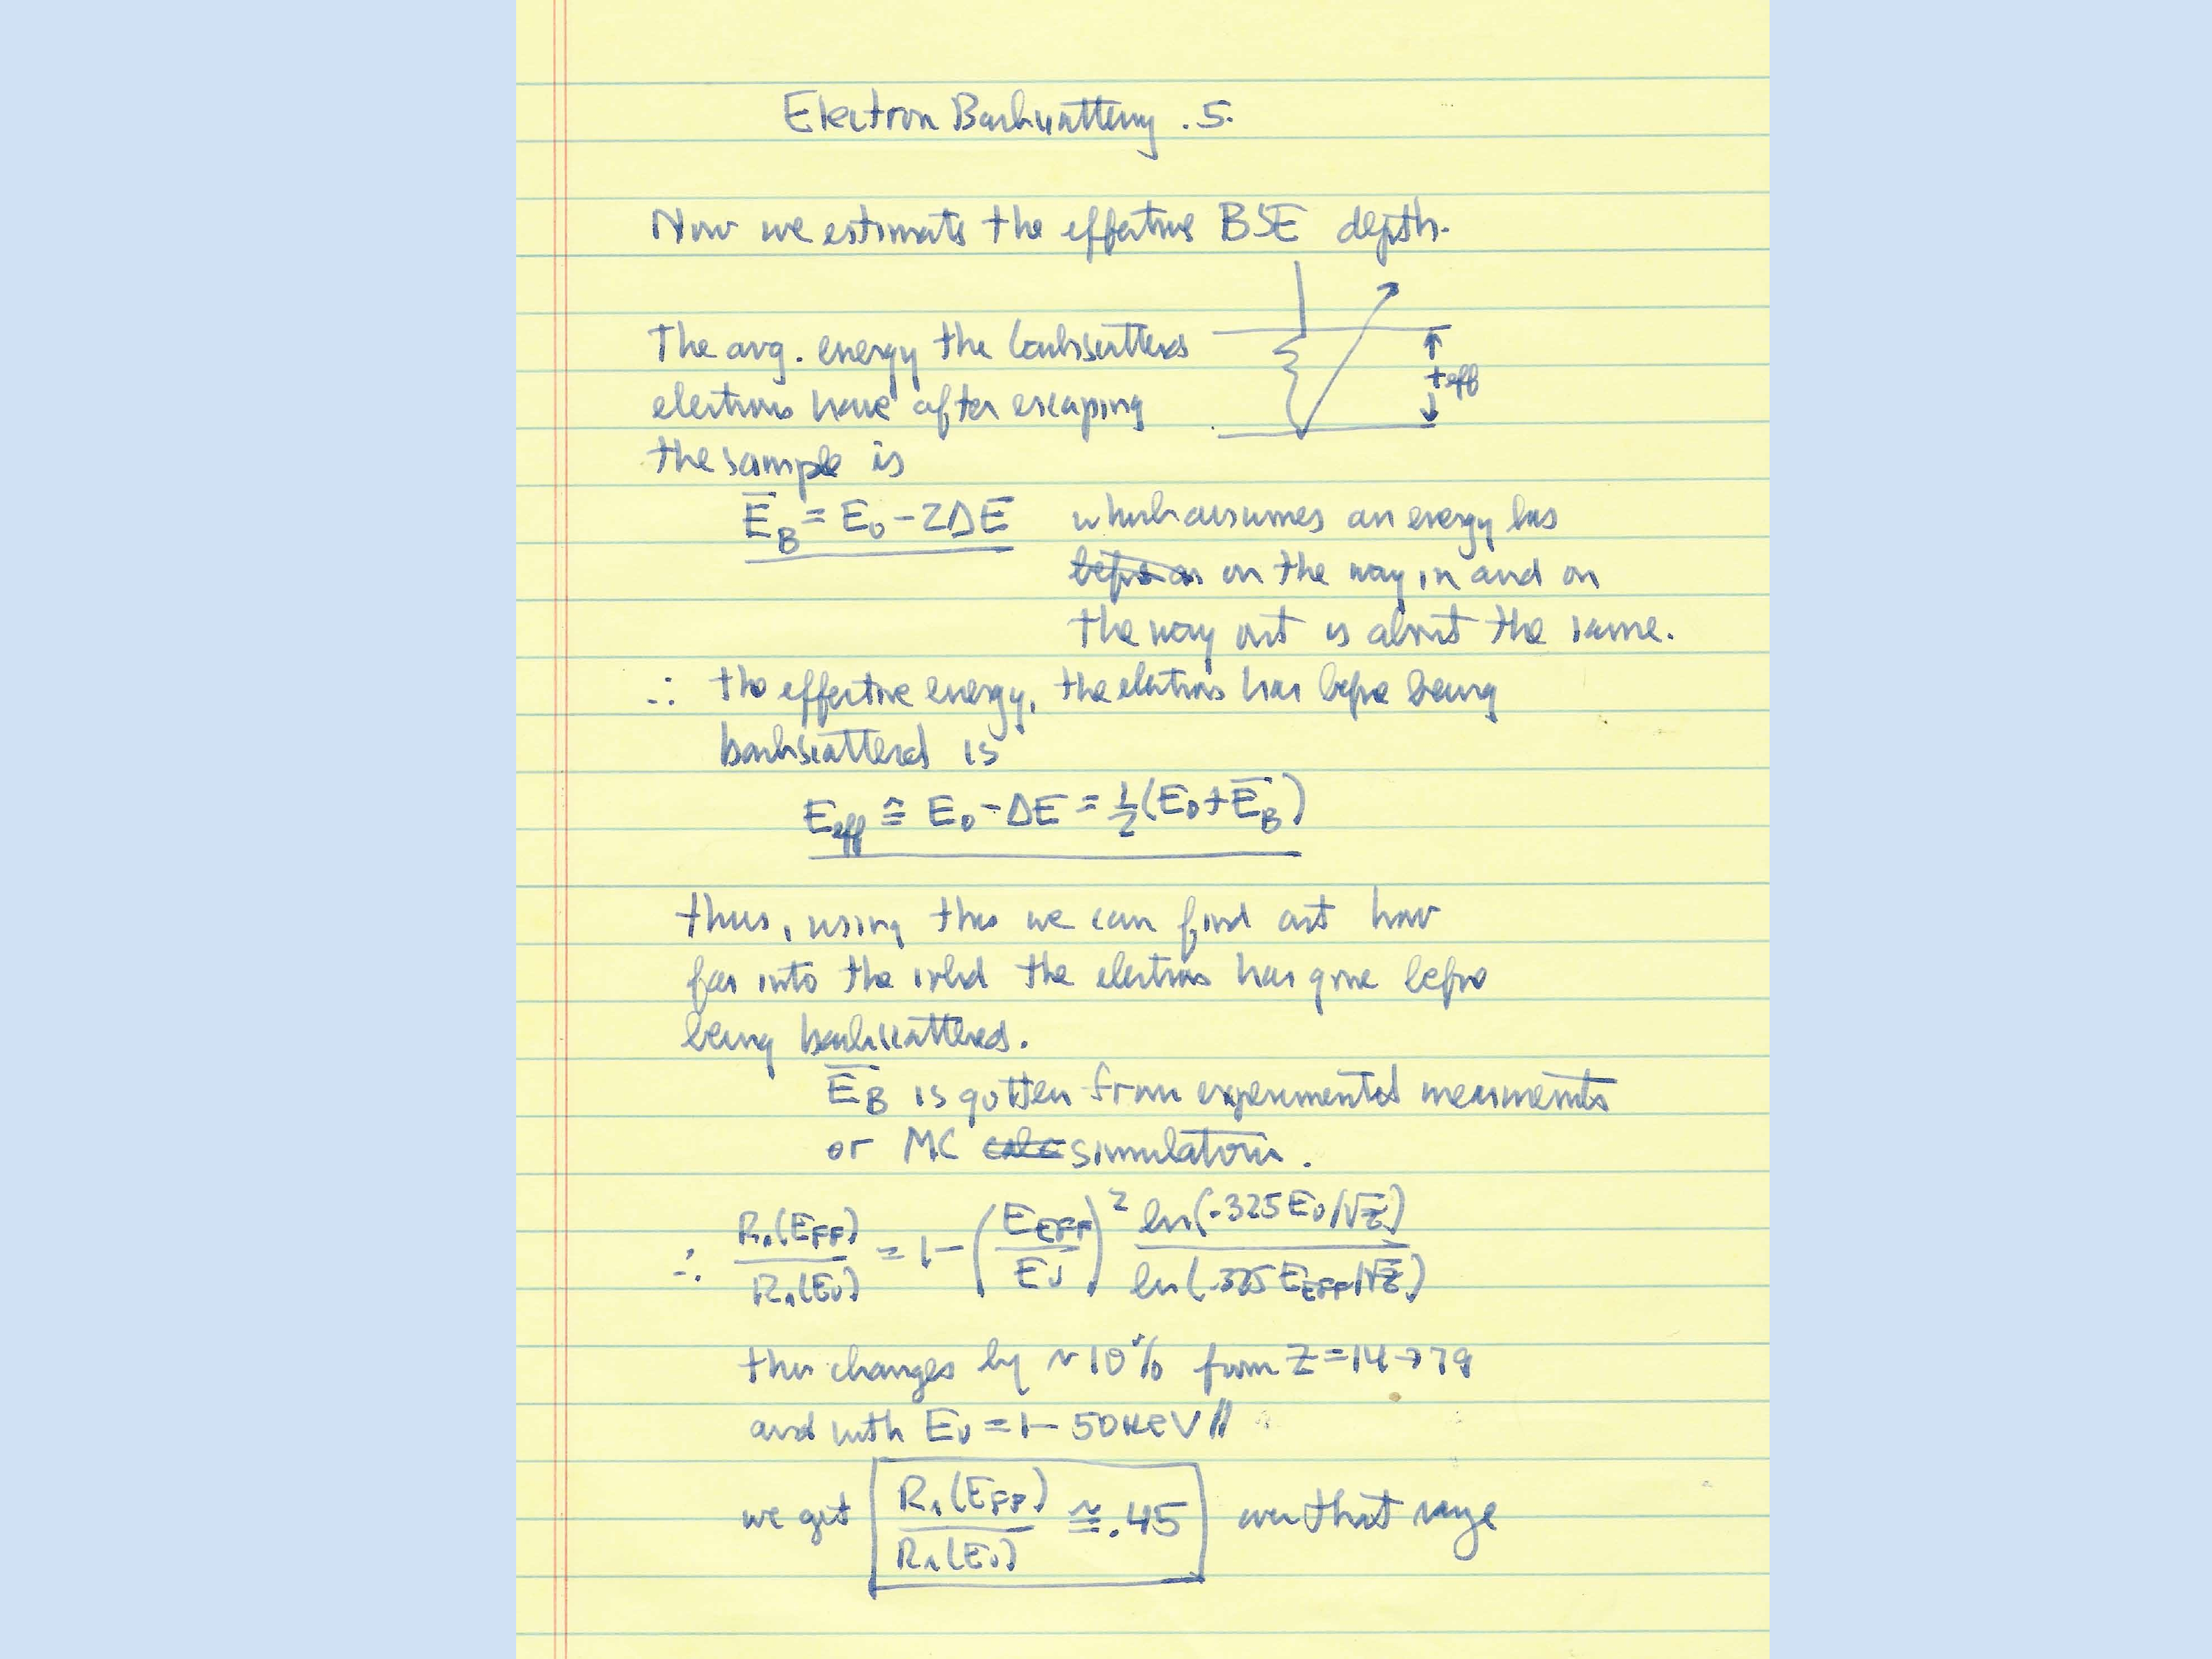 Electron Backscattering . 5.
Now we estimate the effective BSE depth.
The avg. energy the backscattered
electrons have after escaping
teff
the sample is
E̅_B = E₀ - 2ΔE which assumes an energy loss
on the way in and on
the way out is about the same.
∴ the effective energy, the electrons has before being
backscattered is
E_eff ≅ E₀ - ΔE = ½(E₀ + E̅_B)
thus, using this we can find out how
far into the solid the electrons has gone before
being backscattered.
E̅_B is gotten from experimental measurements
or MC simulations.
∴ R₁(E_FF) / R₁(E₀) = 1 - (E_EFF / E₀)² ln(.325 E₀/√Z) / ln(.325 E_EFF/√Z)
this changes by ~ 10% from Z = 14 → 79
and with E₀ = 1 - 50 keV //
we get R₁(E_FF) / R₁(E₀) ≅ .45 over that range